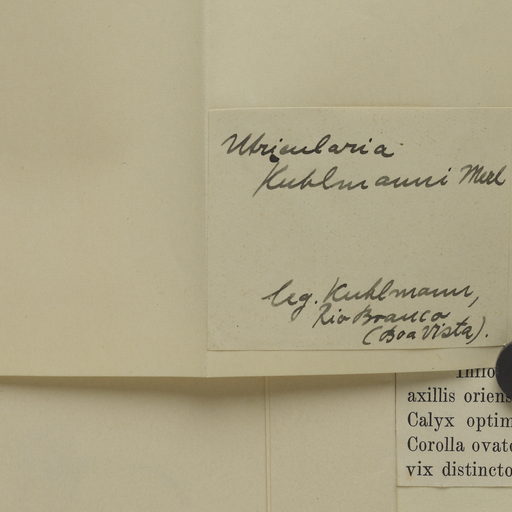 Utricularia
Kuhlmanni Merl
leg. Kuhlmann,
Rio Branco
(Boa Vista).
axillis oriens
Calyx optim
Corolla ovate
vix distincto